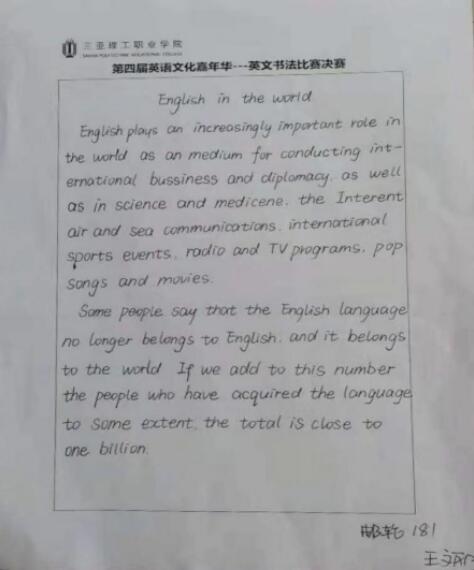 三亚理工职业学院
SANYA POLYTECHNIC VOCATIONAL COLLEGE
第四届英语文化嘉年华---英文书法比赛决赛
English in the world
English plays an increasingly important role in
the world as an medium for conducting int-
ernational bussiness and diplomacy, as well
as in science and medicene, the Interent
air and sea communications, international
sports events, radio and TV programs, pop
songs and movies.
Some people say that the English language
no longer belongs to English, and it belongs
to the world If we add to this number
the people who have acquired the language
to some extent, the total is close to
one billion.
181
王文